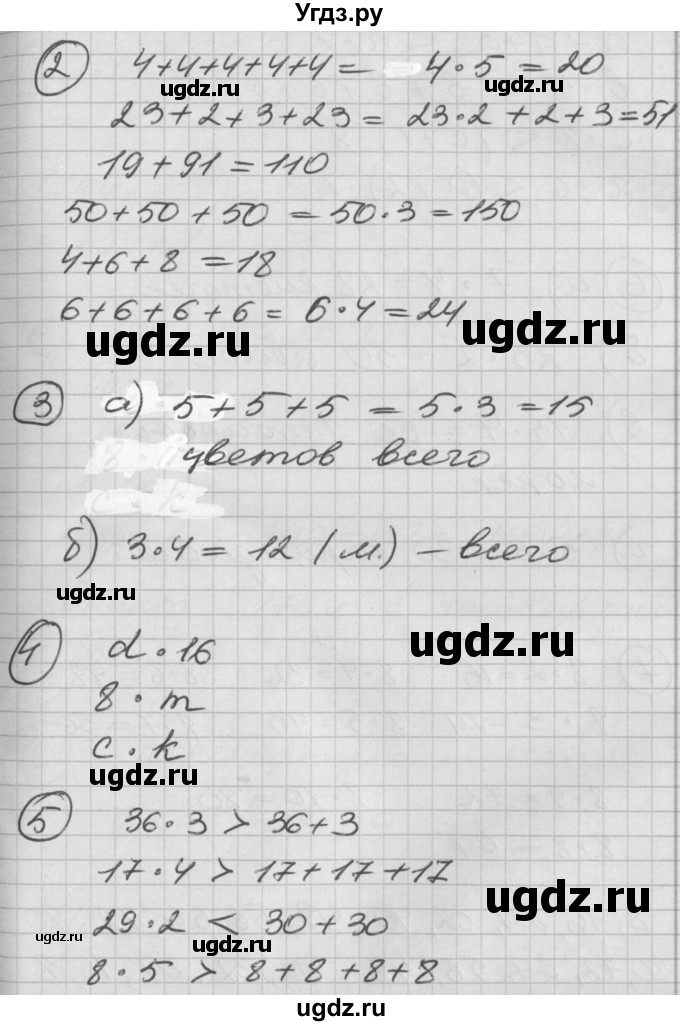 Угдз.ру
2 4+4+4+4+4= 4·5=20
ugdz.ru ugdz.ru
23+2+3+23= 23·2+2+3=51
19+91=110
50+50+50=50·3=150
4+6+8=18
6+6+6+6=6·4=24
ugdz.ru ugdz.ru
3 а) 5+5+5=5·3=15
цветов всего
б) 3·4=12 (м.) – всего
ugdz.ru
4 d·16
ugdz.ru
8·m
c·k
ugdz.ru
5 36·3>36+3
17·4>17+17+17
ugdz.ru
29·2<30+30
ugdz.ru ugdz.ru
8·5>8+8+8+8
ugdz.ru